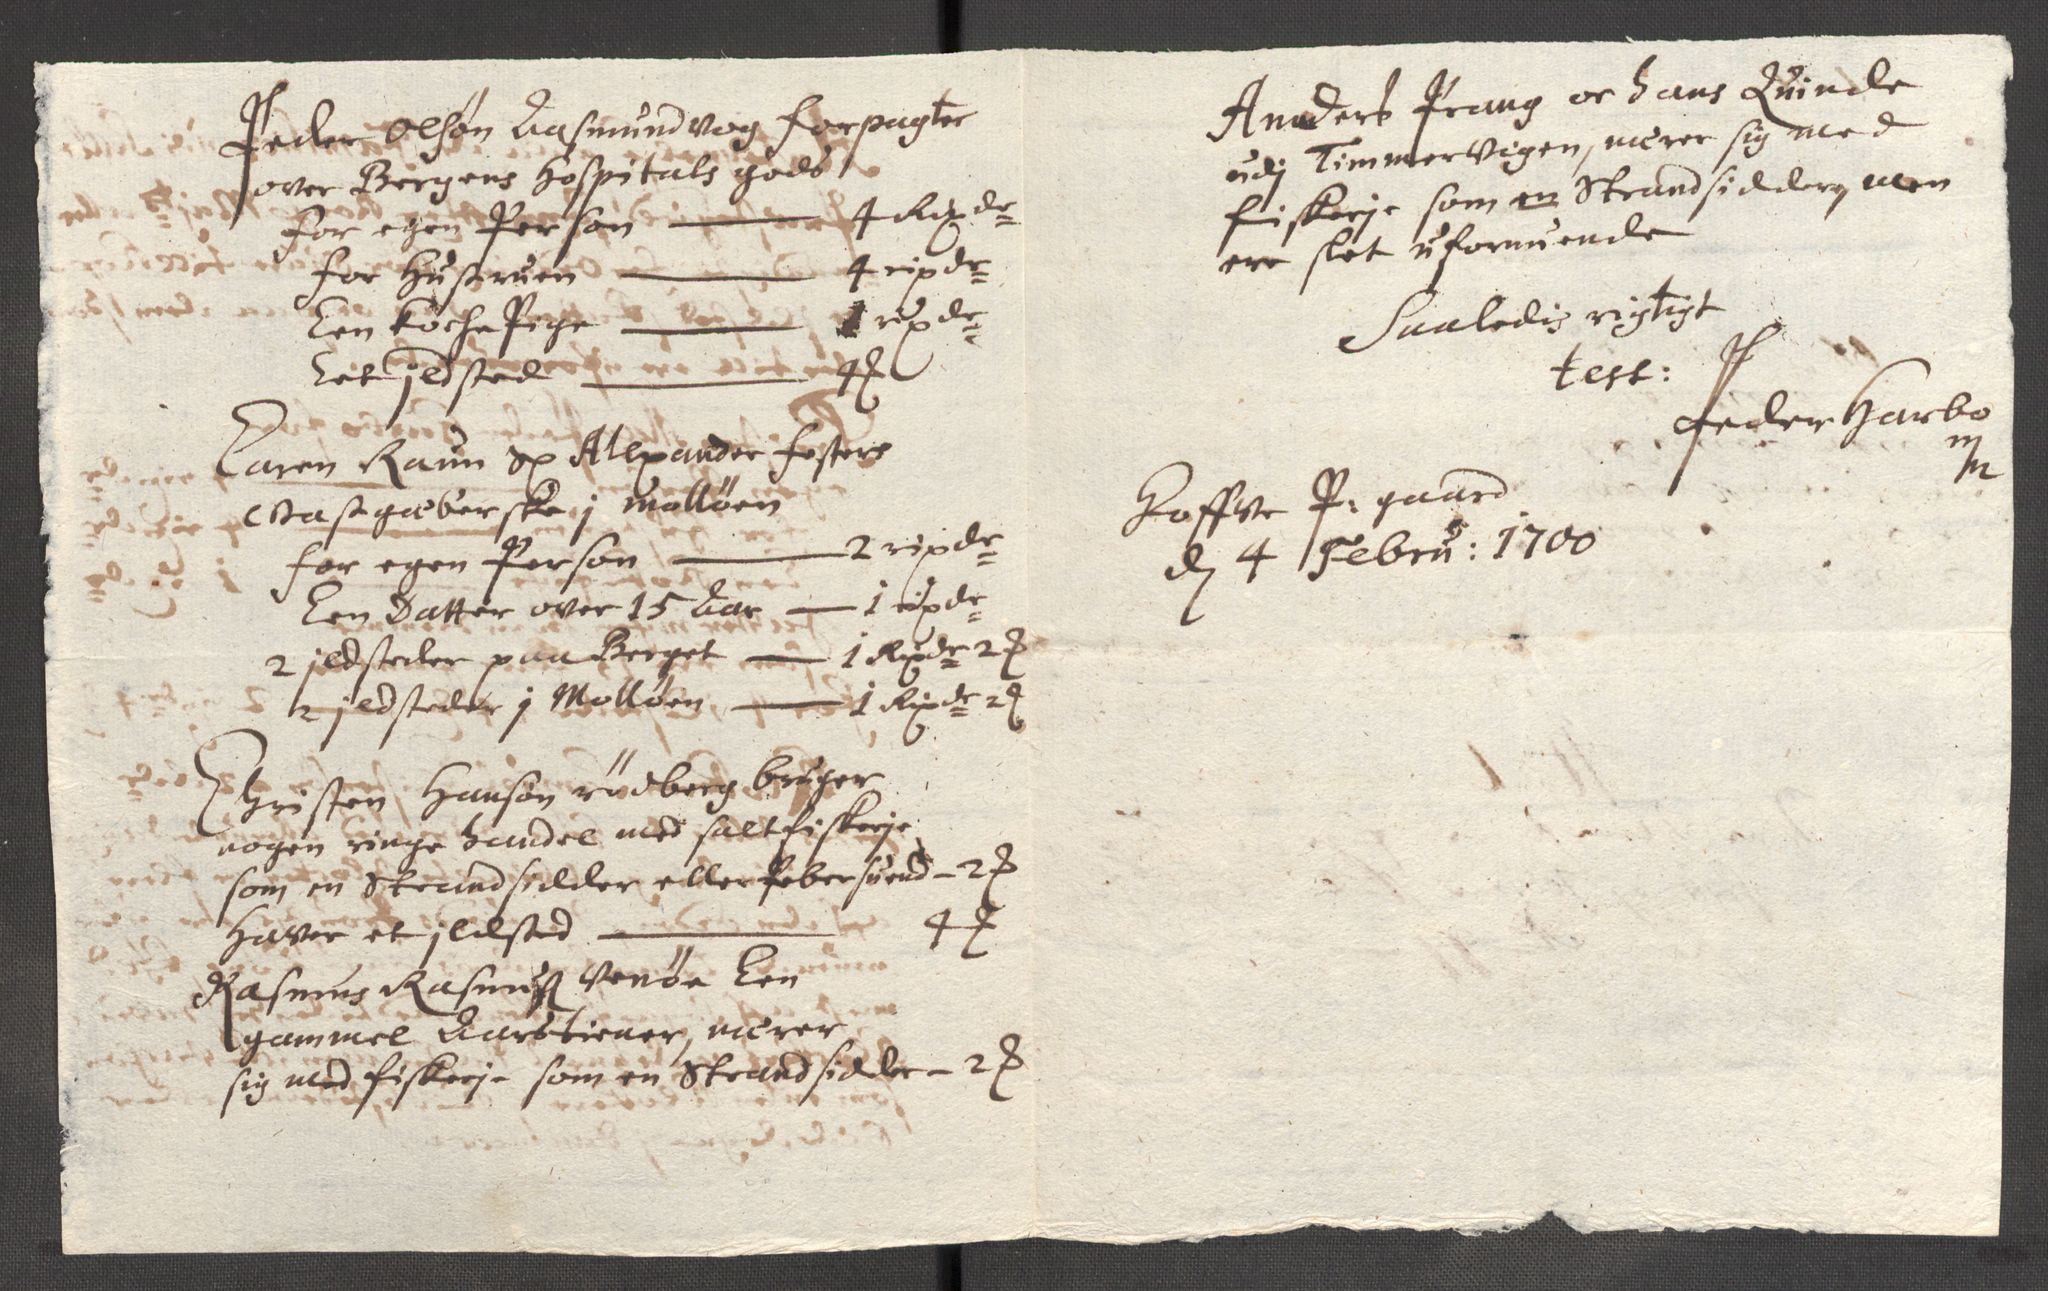 Peder Olsøn Aasmundvog forpagter
over Bergens Hospitals gods
for egen Person — 4 Rixdr
for Hustruen — 4 rixdr
Een Koche Pige — 1 rixdr
Eet jldsted — 4 ß
Caren Raun Sp Alexander festers
Giastgæberske j Molløen
for egen Person — 2 rixdr
Een Datter over 15 Aar — 1 rixdr
2 jldsteder paa Berget — 1 Rixdr 2 ß
2 jldsteder j Molløen — 1 Rixdr 2 ß
Christen Hansøn rödberg bruger
nogen ringe handel med saltfiskerje
som en Strandsidder eller Pebersuend — 2 ß
Haver et jldsted — 4 ß
Rasmus Rasmuß Venøe Een
gammel Aarstiener, nærer
sig med fiskerje som en Strandsidder — 2 ß
Anders Prang oc hans Quinde
udj Timmervigen, nærer sig med
fiskerje som en Strandsidder, men
ere slet uformuende
Saaledis rigtigt
test:
Peder Harbo
mp
P: gaard
dj 4 Febru: 1700